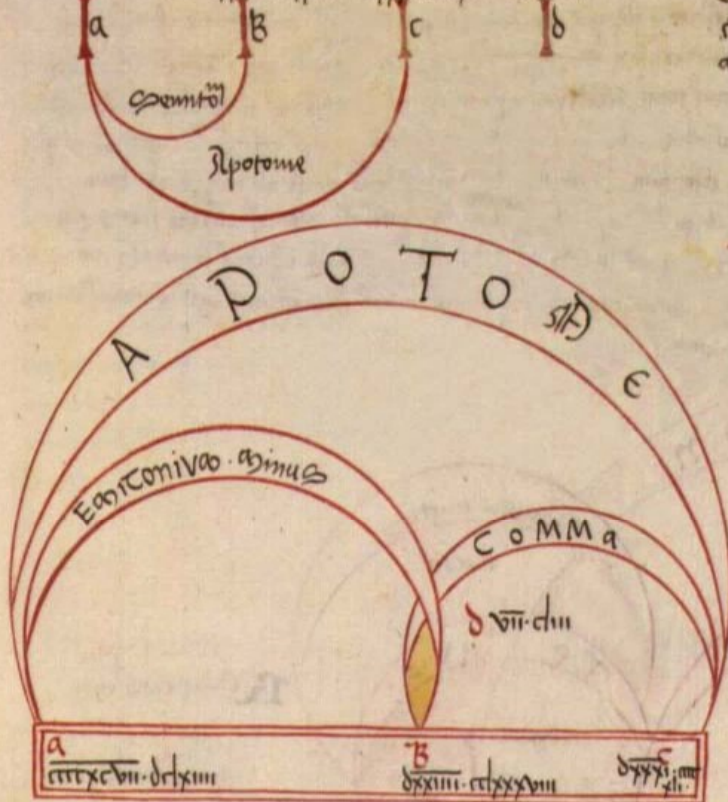 a B c d
Semitom
Apotome
APOTOME
EmiTonivm · minus
CoMMa
d v̅i̅i̅·cliii
a B c
c̅c̅c̅c̅x̅c̅v̅i̅i̅·dclxiiii d̅x̅x̅i̅i̅i̅i̅·cclxxxviii d̅x̅x̅x̅i̅·cccc
xli·